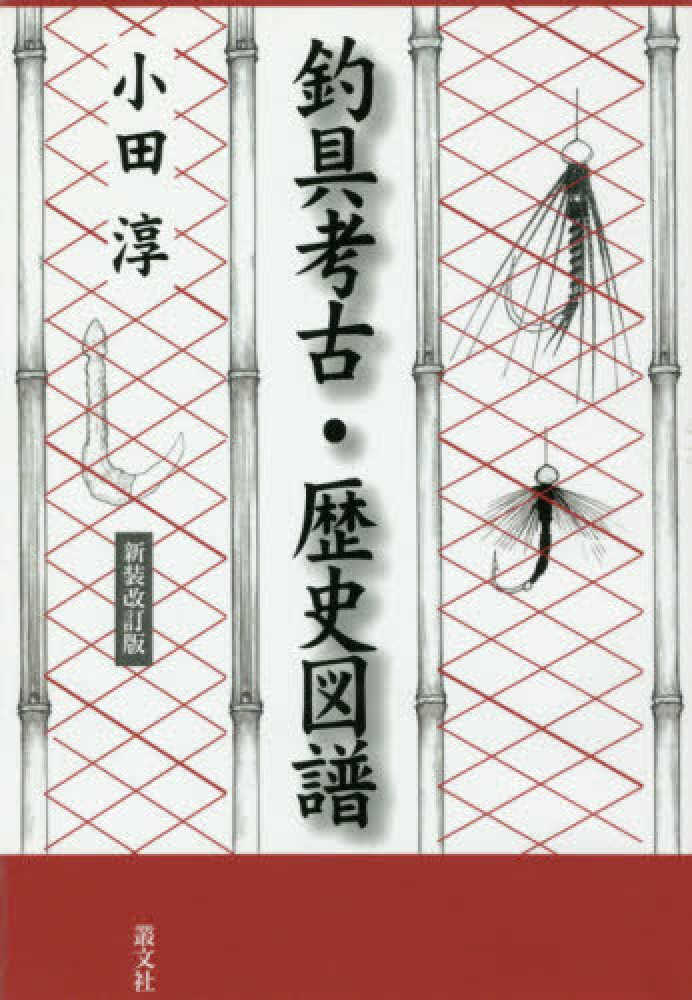 釣具考古・歴史図譜
小田 淳
新装改訂版
叢文社